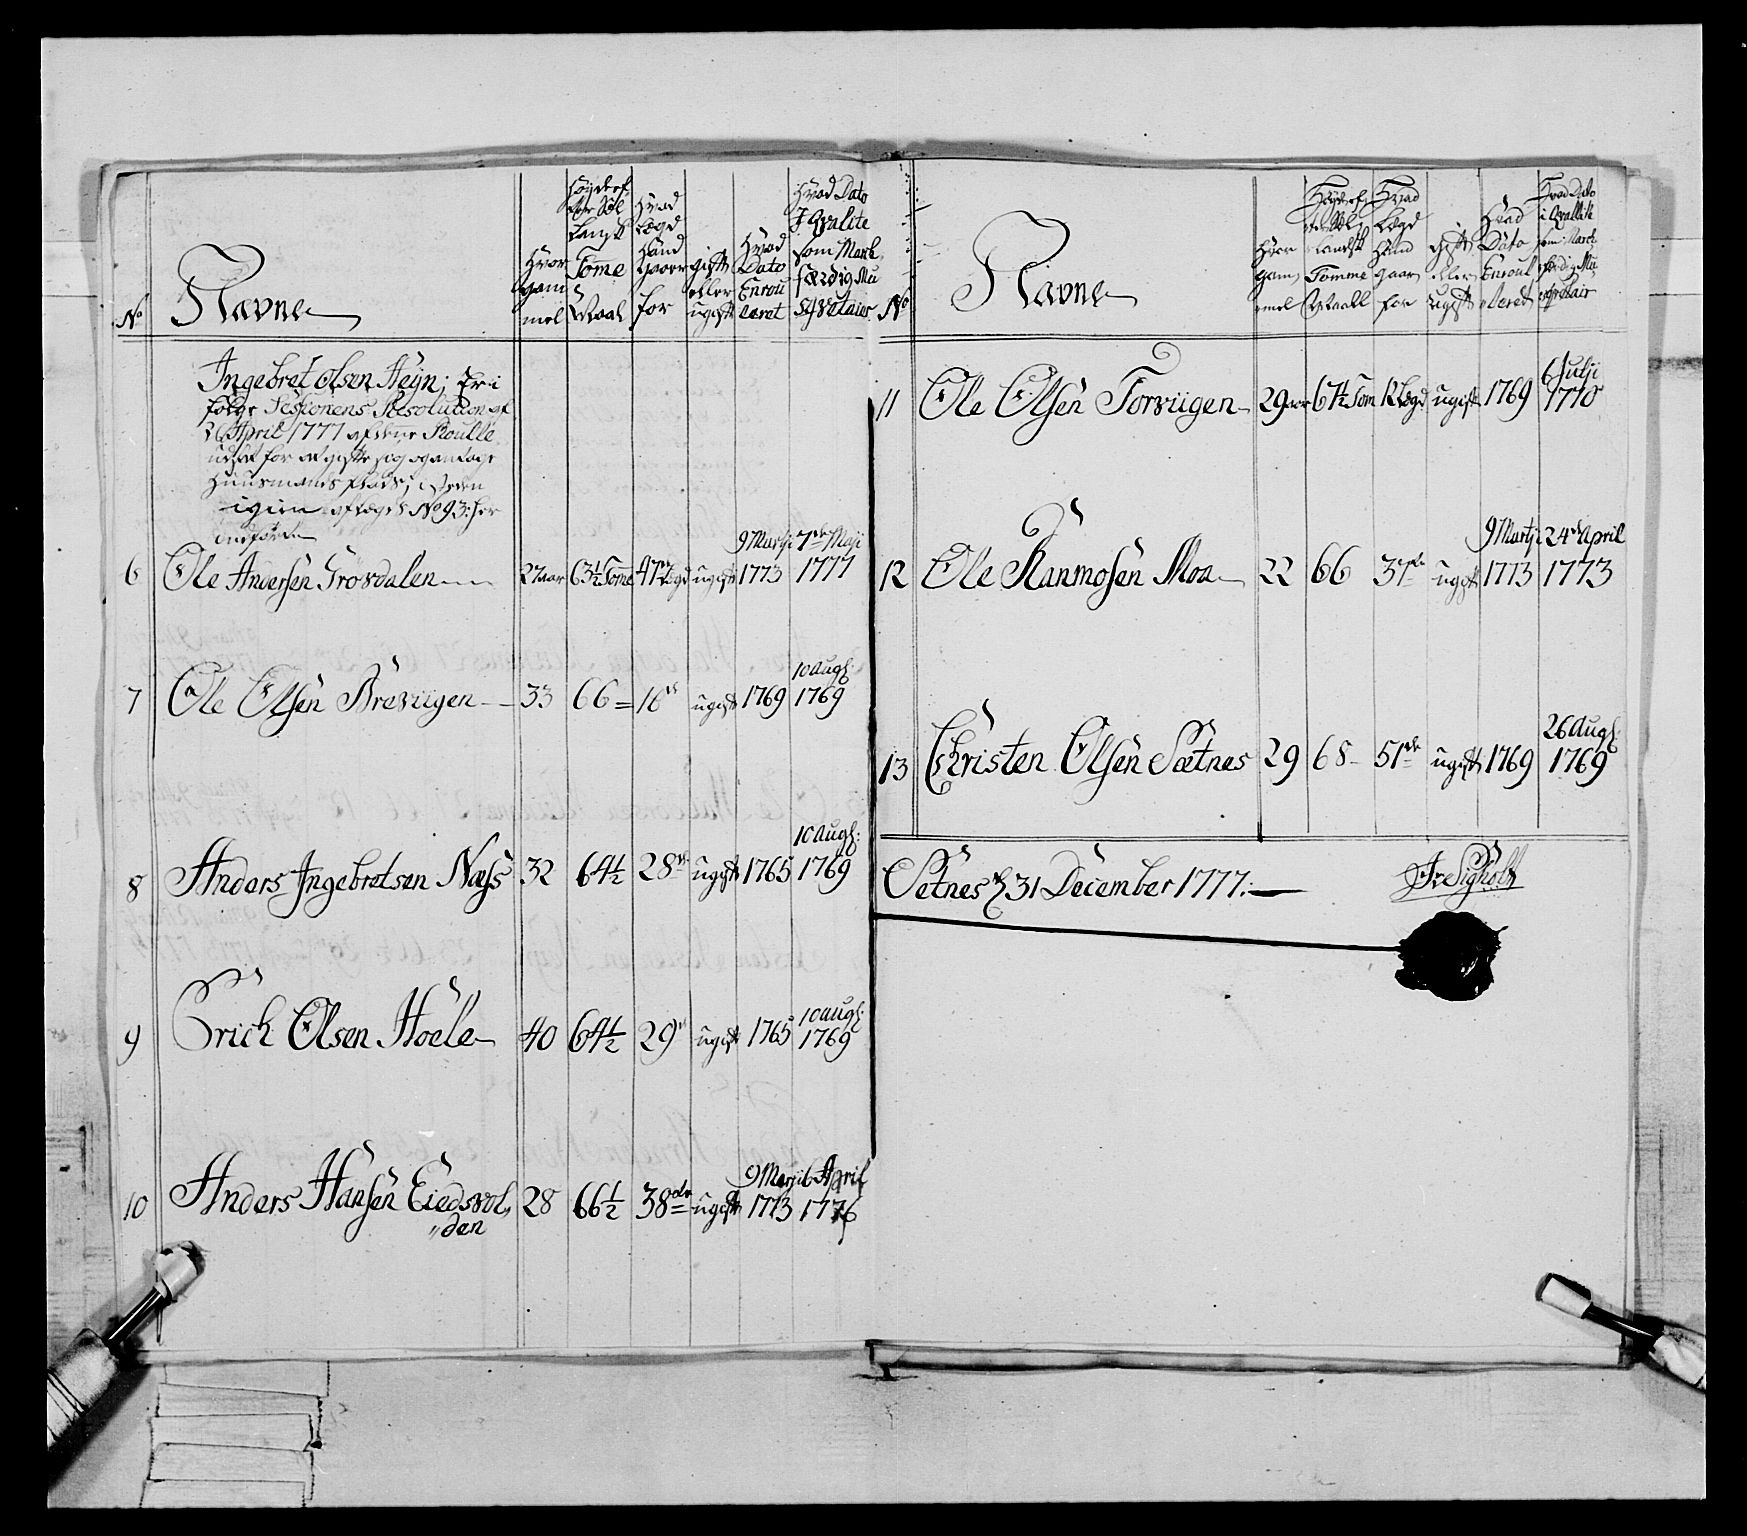 No Navne Hvor gam mel Høyde ef ter Sæl Landsk Tome Maal Hvad Lægd Hand Gaaer for gift eller ugift Hvad Dato Enrou leret Hvad Dato J Qvalite som Mark færdig Mu sqvetair
Ingebret Olsen Heyn; Er i
følge Sessionens Resolution af
26 April 1777 af denne Roulle
udsat for at gifte sig og antage
Huusmands Plads; i Steden
igien af Lægd No 93: her
indført
6 Ole Andersen Grøvdalen 27 aar 63½ Tome 47de Lægd ugift 9 Martji 1773 7de Maji 1777
7 Ole Olsen Breviigen 33 66 = 16de ugift 1769 10 Augl: 1769
8 Anders Ingebretsen Næss 32 64½ 28de ugift 1765 10 Augl: 1769
9 Erich Olsen Hoele 40 64½ 29de ugift 1765 10 Augl: 1769
10 Anders Hansen Eiedsvol„ 28 66½ 38de ugift 9 Martji 1773 6 April 1776
„den
No Navne Hvor gam mel Høyde ef ter Sæl Landsk Tomme Maall Hvad Lægd Hand gaar for gift eller ugift Hvad Dato Enroul leret Hvad Dato i Qvallite som March færdig Mu sqvetair
11 Ole Olsen Torviigen 29 aar 67½ Tom 12 Lægd ugift 1769 6 Julji 1770
12 Ole Rasmosen Moa 22 66 37de ugift 9 Martji 1773 24de April 1773
13 Christen Olsen Sætnes 29 68 51de ugift 1769 26 Augl: 1769
Setnes d 31 December 1777.